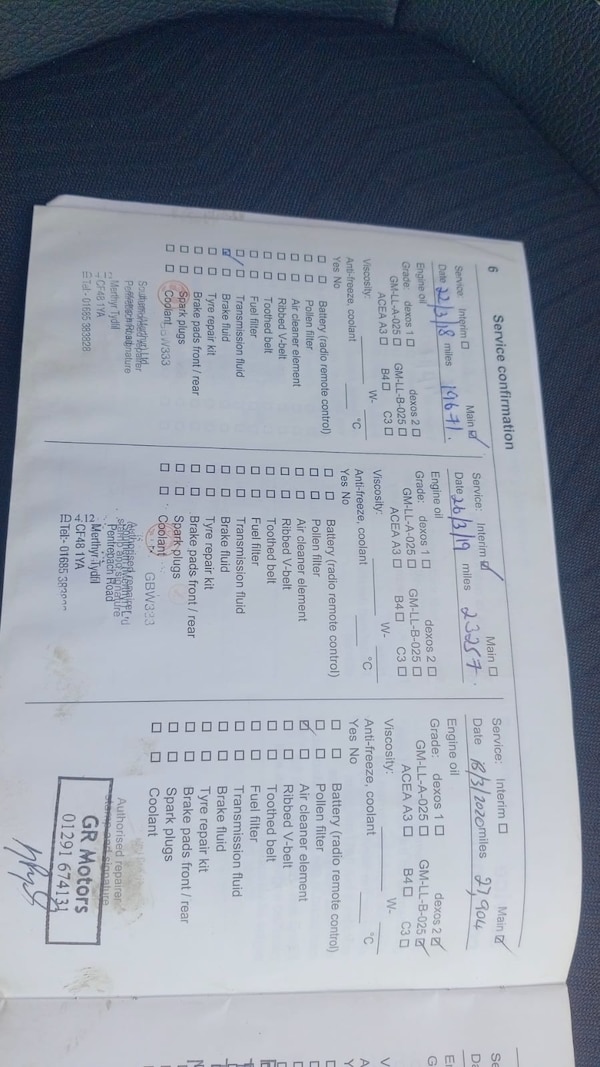 6
Service confirmation
Service: Interim ☐ Main ☑
Date 22/3/18 miles 19671.
Engine oil
Grade: dexos 1 ☐ dexos 2 ☐
GM-LL-A-025 ☐ GM-LL-B-025 ☐
ACEA A3 ☐ B4 ☐ C3 ☐
Viscosity: W-
Anti-freeze, coolant °C
Yes No
☐ ☐ Battery (radio remote control)
☐ ☐ Pollen filter
☐ ☐ Air cleaner element
☐ ☐ Ribbed V-belt
☐ ☐ Toothed belt
☐ ☐ Fuel filter
☐ ☐ Transmission fluid
☑ ☐ Brake fluid
☐ ☐ Tyre repair kit
☐ ☐ Brake pads front / rear
☐ ☐ Spark plugs
☐ ☐ Coolant
Merthyr Tydfil
CF48 1YA
Tel:- 01685 383828
Service: Interim ☑ Main ☐
Date 26/3/19 miles 23257.
Engine oil
Grade: dexos 1 ☐ dexos 2 ☐
GM-LL-A-025 ☐ GM-LL-B-025 ☐
ACEA A3 ☐ B4 ☐ C3 ☐
Viscosity: W-
Anti-freeze, coolant °C
Yes No
☐ ☐ Battery (radio remote control)
☐ ☐ Pollen filter
☐ ☐ Air cleaner element
☐ ☐ Ribbed V-belt
☐ ☐ Toothed belt
☐ ☐ Fuel filter
☐ ☐ Transmission fluid
☐ ☐ Brake fluid
☐ ☐ Tyre repair kit
☐ ☐ Brake pads front / rear
☐ ☐ Spark plugs
☐ ☐ Coolant
Pentrebach Road
Merthyr Tydfil
CF48 1YA
Tel:- 01685
Service: Interim ☐ Main ☑
Date 18/3/2020 miles 27,904
Engine oil
Grade: dexos 1 ☐ dexos 2 ☑
GM-LL-A-025 ☐ GM-LL-B-025 ☑
ACEA A3 ☐ B4 ☐ C3 ☐
Viscosity: W-
Anti-freeze, coolant °C
Yes No
☐ ☐ Battery (radio remote control)
☐ ☐ Pollen filter
☑ ☐ Air cleaner element
☐ ☐ Ribbed V-belt
☐ ☐ Toothed belt
☐ ☐ Fuel filter
☐ ☐ Transmission fluid
☐ ☐ Brake fluid
☐ ☐ Tyre repair kit
☐ ☐ Brake pads front / rear
☐ ☐ Spark plugs
☐ ☐ Coolant
Authorised repairer
stamp and signature
GR Motors
01291 674131